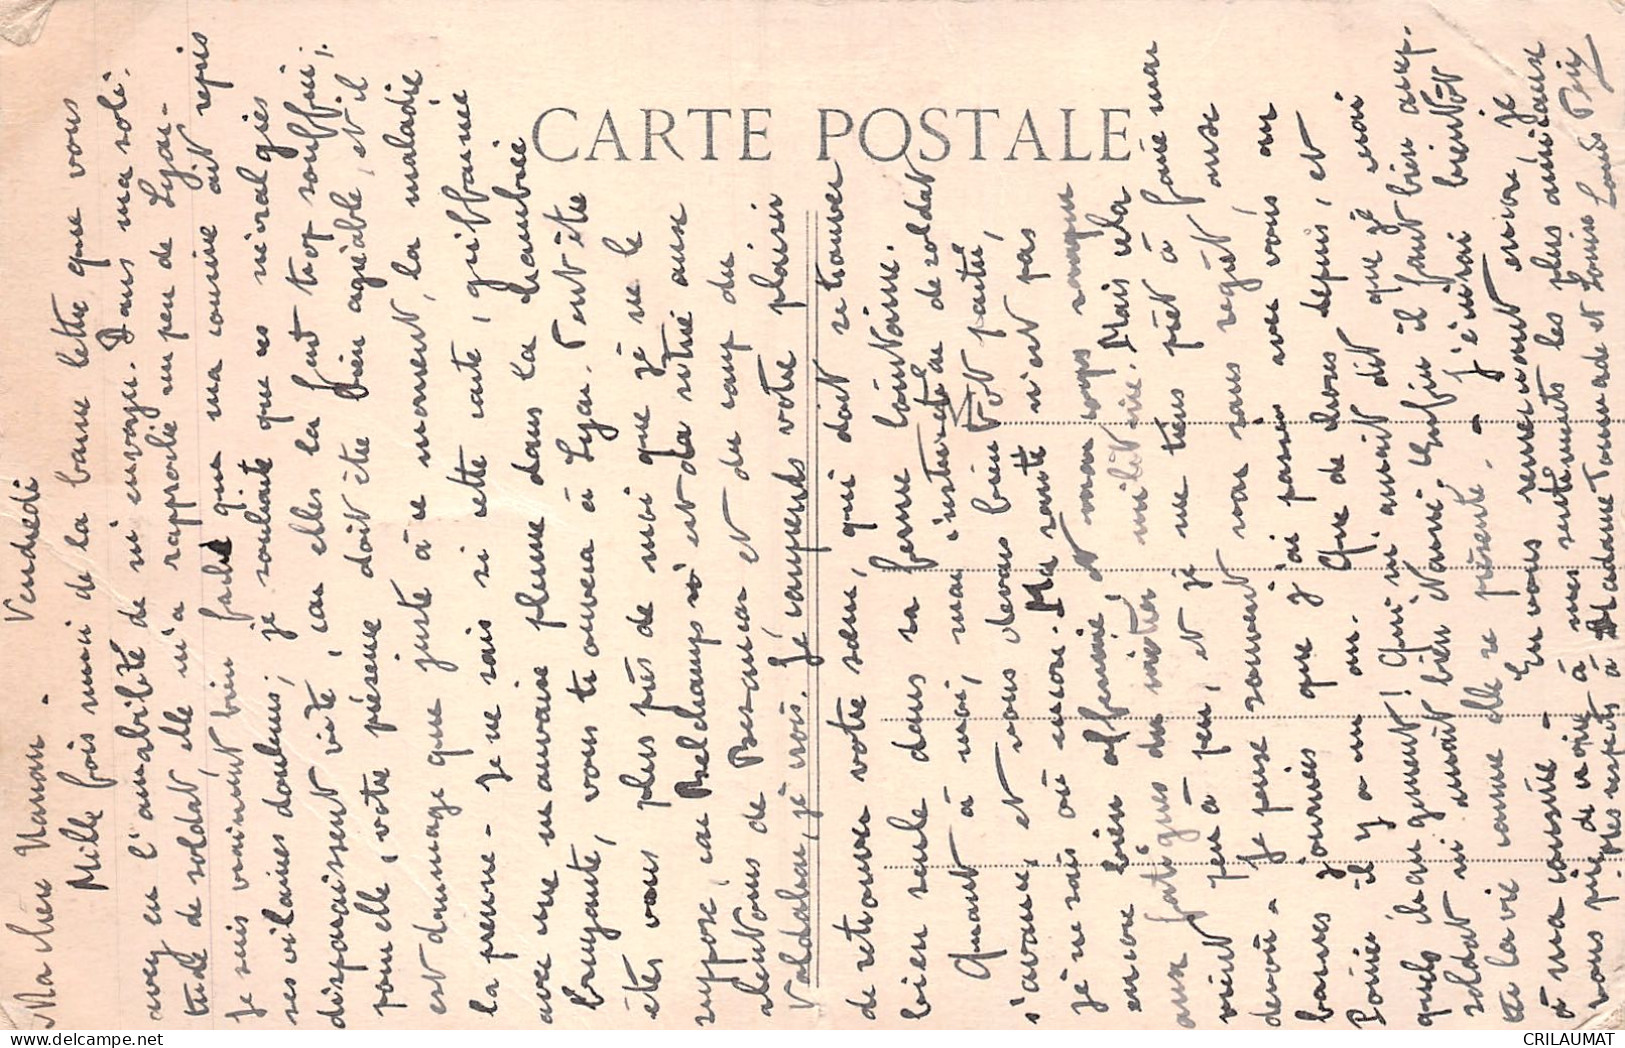 CARTE POSTALE
Vendredi
Ma chère Nanou -
Mille fois merci de la bonne lettre que vous
avez eu l'amabilité de m'envoyer. Dans ma soli-
tude de soldat, elle m'a rapporté un peu de Lyon -
Je suis vraiment bien que ma cousine ait repris
ses vilaines douleurs; je souhaite que ces névralgies
disparaissent vite, car elles la font trop souffrir;
pour elle, votre présence doit être bien agréable, et il
est dommage que juste à ce moment, la maladie
la prenne - Je ne sais si cette carte, griffonnée
avec une mauvaise plume dans la chambrée
bruyante, vous trouvera à Lyon. Peut-être
êtes vous plus près de moi que je ne le
suppose, car Belchamps est da notre aux
alentours de Besançon et du camp du
Valdahon, je crois. Je comprends votre plaisir
de retrouver votre sœur, qui doit se trouver
bien seule dans sa ferme lointaine.
Quant à moi, mon instruction de soldat
s'avance, et nous devons bientôt partir,
je ne sais où encore. Ma santé n'est pas
encore bien affermie, et mon corps manque
aux fatigues du métier militaire. Mais cela
vient peu à peu, et je me tiens prêt à faire mon
devoir - Je pense souvent non sans regret, aux
bonnes journées que j'ai passées avec vous au
il y a un an. Que de choses depuis, et
quels changements! Qui m'aurait dit que je serai
soldat m'aurait bien étonné. Enfin il faut bien accep-
ter la vie comme elle se présente. - J'écrirai bientôt
à ma cousine - En vous remerciant encore, je
vous prie de croire à mes sentiments les plus amicaux
- Mes respects à Madame et Louise